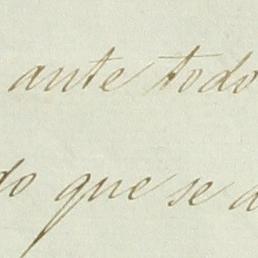 ante todo
do que se d